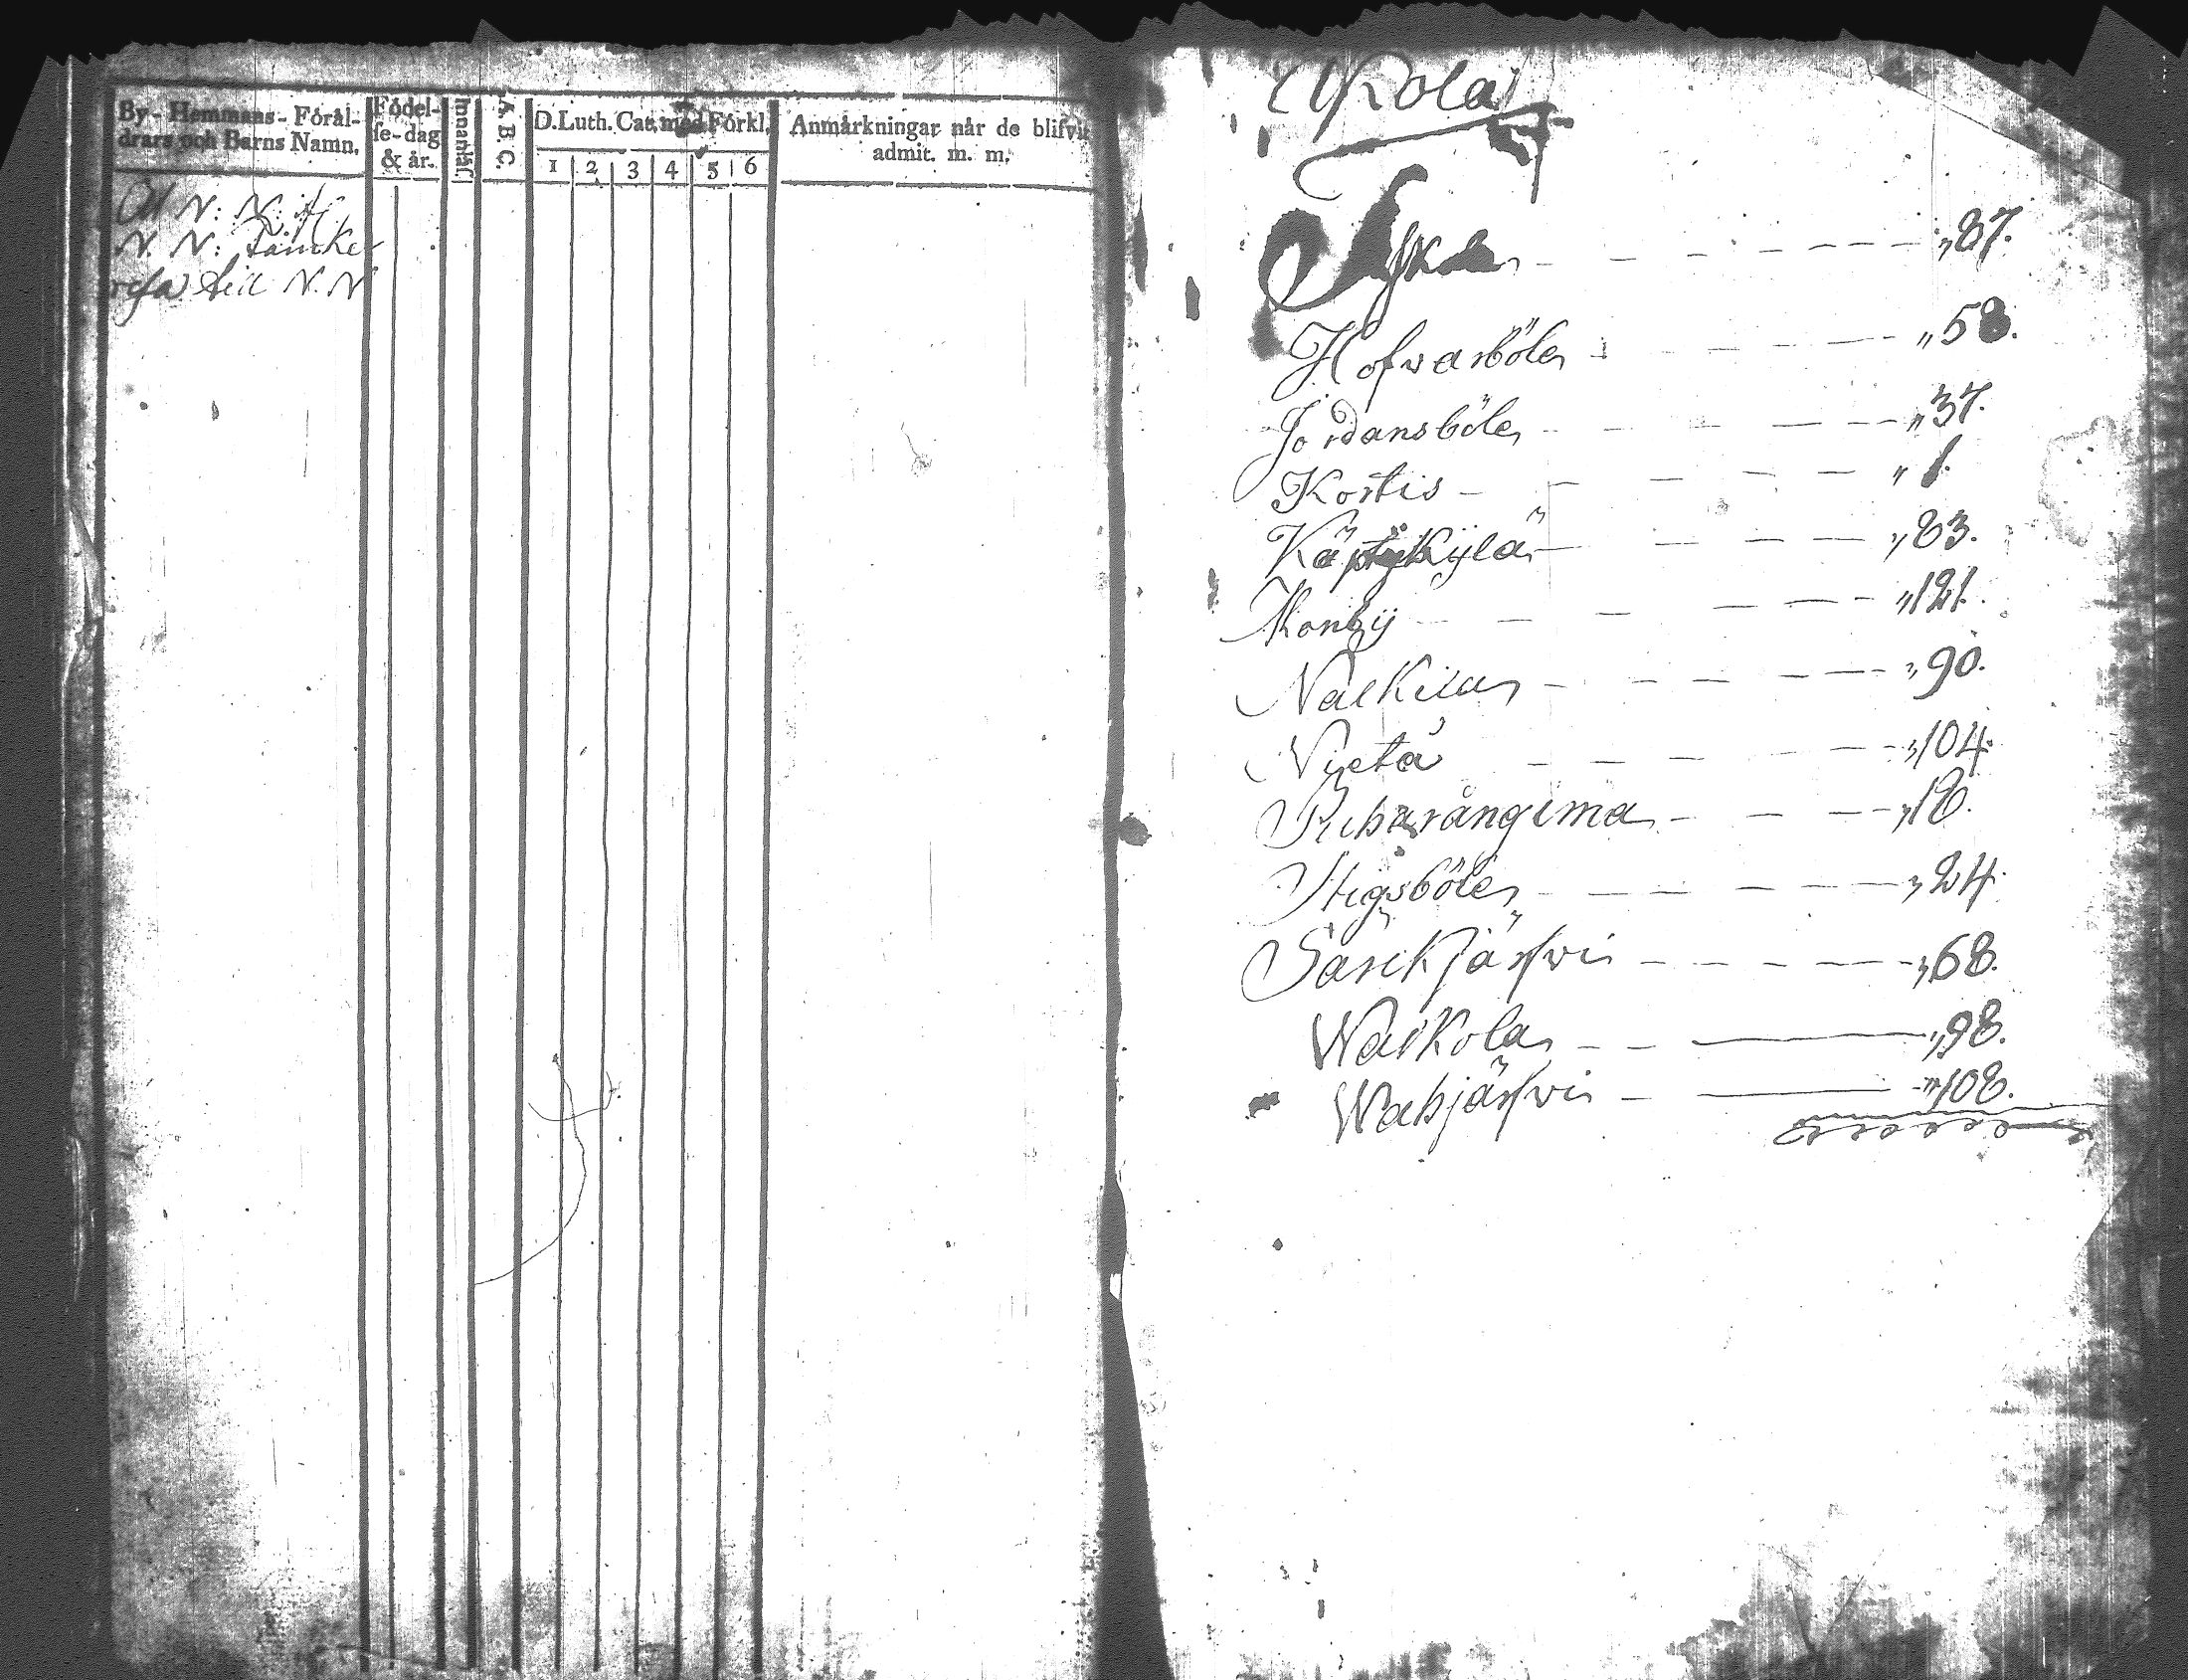 By- Hemmans- Föräl-
drars och Barns Namn.
Födel-
se-dag
& år.
Innanläs.
A. B. C.
D. Luth. Cat. med Förkl.
1 2 3 4 5 6
Anmärkningar når de blifvit
admit. m. m.
N. N.
N. N:
till N. N
Kola
- - - - „87.
Hofvarböle - - - „58.
Jordansböle - - - - „37.
Kortis - - - - „1.
Käpykylä - - - - „83.
Monby - - - - „121.
Nalkila - - - - „90.
Nyetå - - - - „104.
- - - „18.
Stigsböle - - - - „24.
Särkjärfvi - - - - „68.
Walkola - - - „98.
Wahjärfvi - - „108.